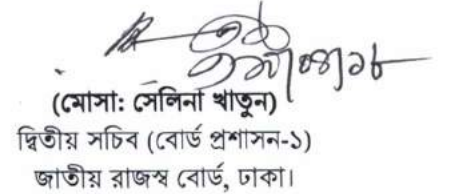 (মোসা: সেলিনা খাতুন)
দ্বিতীয় সচিব (বোর্ড প্রশাসন-১)
জাতীয় রাজস্ব বোর্ড, ঢাকা।